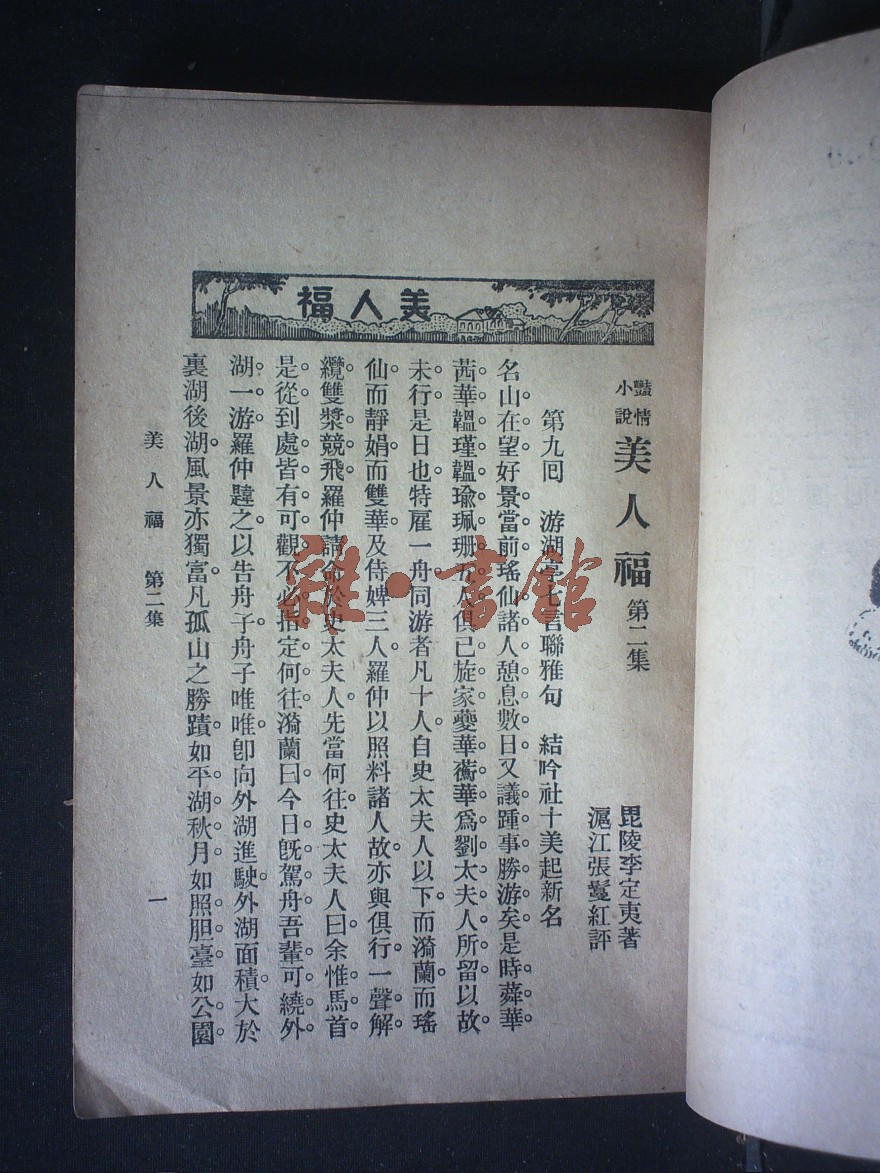 美人福
艷情小說 美人福 第二集
毘陵李定夷著
滬江張鬘紅評
第九回 游湖亭七言聯雅句 結吟社十美起新名
名山在望好景當前瑤仙諸人憩息數日又議踵事勝游矣是時蕣華
茜華韞瑾韞瑜珮珊五人俱已旋家夔華蘅華爲劉太夫人所留以故
未行是日也特雇一舟同游者凡十人自史太夫人以下而漪蘭而瑤
仙而靜娟而雙華及侍婢三人羅仲以照料諸人故亦與俱行一聲解
纜雙槳競飛羅仲請命於史太夫人先當何往史太夫人曰余惟馬首
是從到處皆有可觀不必指定何往漪蘭曰今日旣駕舟吾輩可繞外
湖一游羅仲韙之以告舟子舟子唯唯卽向外湖進駛外湖面積大於
裏湖後湖風景亦獨富凡孤山之勝蹟如平湖秋月如照胆臺如公園
美人福 第二集
一
雜·書館